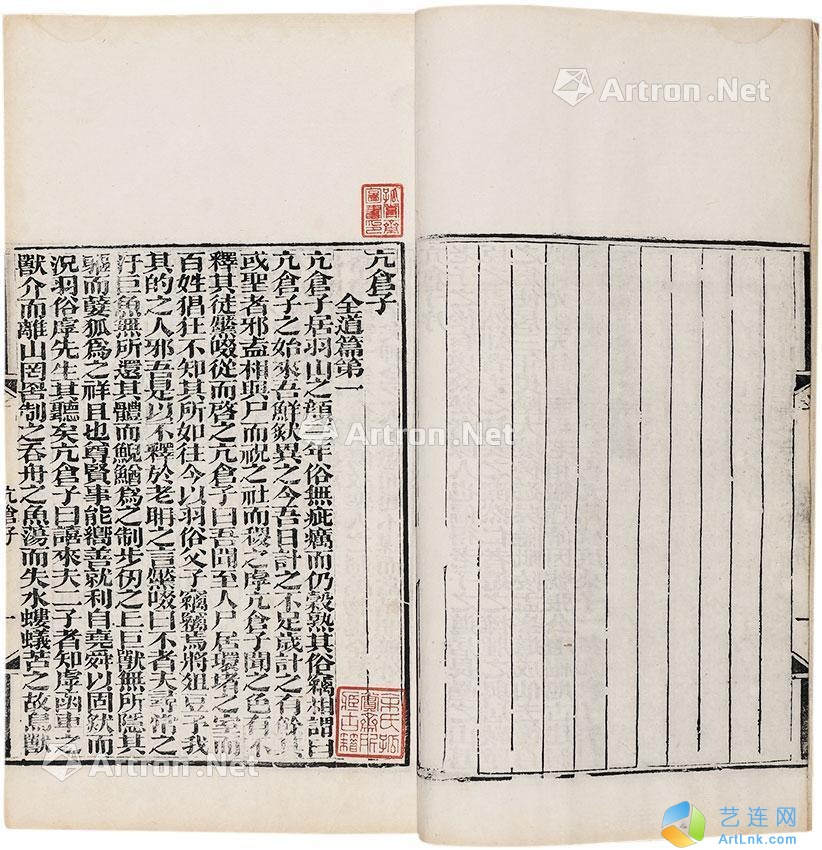 Artron.Net
亢倉子
全道篇第一
亢倉子居羽山之顏三年俗無疵癘而仍穀熟其俗竊相謂曰
亢倉子之始來吾鮮欻異之今吾日計之不足歲計之有餘其
或聖者邪盍相與尸而祝之社而稷之虖亢倉子聞之色有不
釋其徒啜從而啓之亢倉子曰吾聞至人尸居環堵之室而
百姓猖狂不知其所如往今以羽俗父子竊竊焉將俎豆予我
其的之人邪吾是以不釋於老聃之言啜曰不者夫尋常之
汙巨魚無所還其體而鯢鰌爲之制步仞之丘巨獸無所隱其
軀而狐爲之祥且也尊賢事能嚮善就利自堯舜以固欻而
況羽俗虖先生其聽矣亢倉子曰譆來夫二子者知虖函車之
獸介而離山罔罟制之吞舟之魚蕩而失水螻蟻苦之故鳥獸
亢倉子 一
Artron.Net
Artron.Net
艺连网
ArtLnk.com